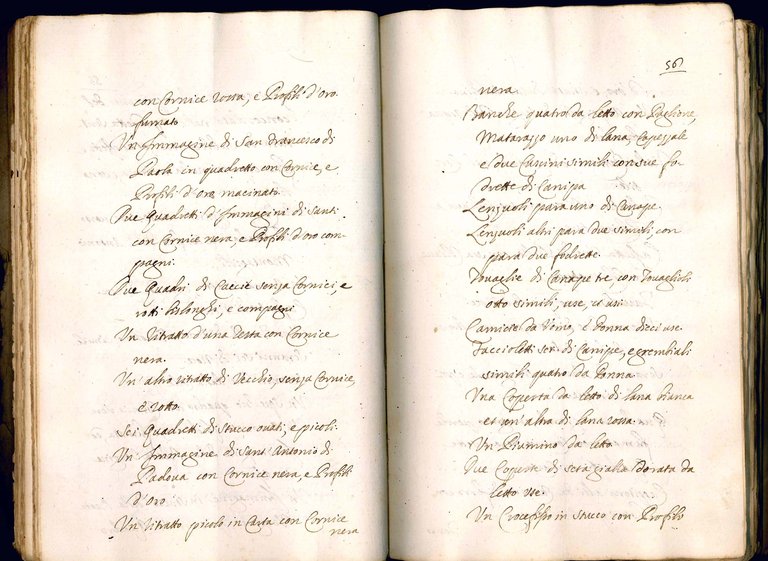 con Cornice rossa, e Profili d'oro
fumato.
Un Immagine di San Francesco di
Paola in quadretto con Cornice, e
Profili d'Oro macinato.
Due Quadretti d'Immagini di Santi
con Cornice nera, e Profili d'oro com
pagni.
Due Quadri di Caccie senza Cornici, e
rotti bislonghi, e compagni
Un Ritratto d'una Testa con Cornice
nera.
Un' altro ritratto di Vecchio senza Cornice,
e rotto.
Sei Quadretti di Stucco ovati, e picoli.
Un' Immagine di Sant' Antonio di
Padova con Cornice nera, e Profili
d'Oro
Un Ritratto picolo in Carta con Cornice
nera
56
nera.
Banche quatro da letto con Paglione,
Matarazzo uno di lana, Capezzale
e due Cussini simili con sue fo
drette di Canipa
Lenzuoli para uno di Canape.
Lenzuoli altri para due simili, con
para due fodrette.
Tovaglie di Canape tre, con Tovaglioli
otto simili, use, et usi.
Camicie da Uomo, e donna dieci use.
Faccioletti sei di Canipe, e grembiali
simili quatro da donna.
Una Coperta da letto di lana bianca
et un' altra di lana rossa.
Un Piumino da letto.
Due Coperte di seta gialla dorata da
letto use.
Un Crocefisso in stucco con Profili